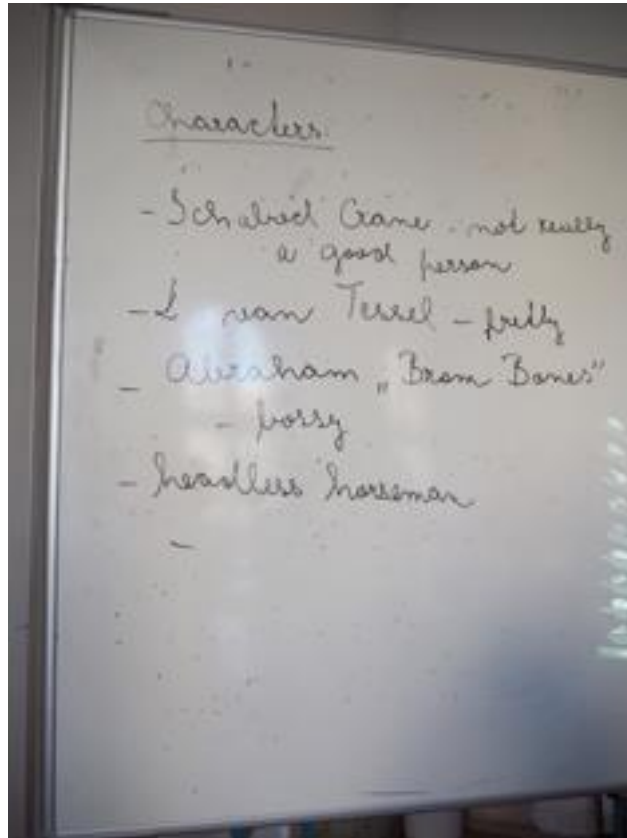 Characters:
- Ichabod Crane - not really
a good person
- L van Tassel - pretty
- Abraham „Brom Bones"
- bossy
- headless horseman
-